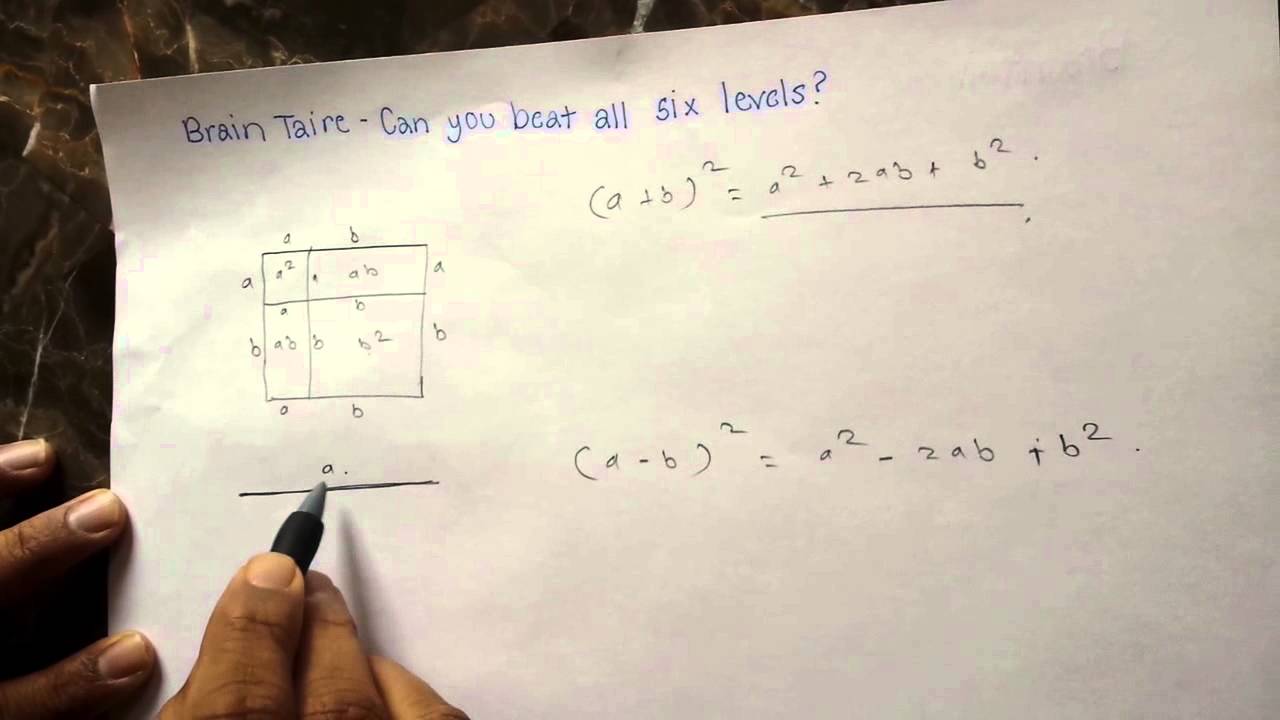 Brain Taire - Can you beat all six levels?
(a + b)² = a² + 2ab + b² .
a b
a a² a ab a
a b
b ab b b² b
a b
(a - b)² = a² - 2ab + b² .
a .